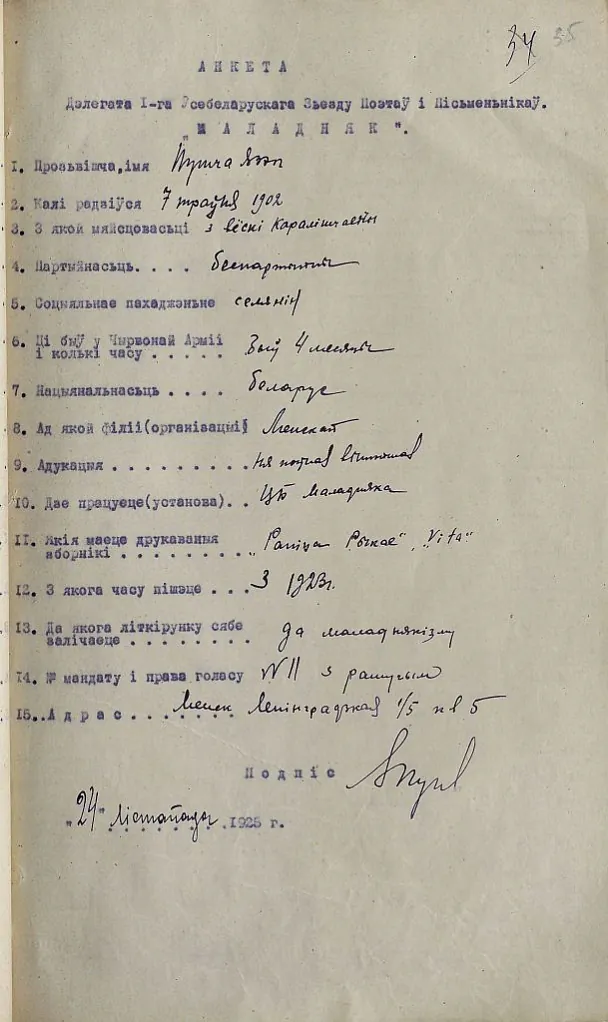 34 35
АНКЕТА
Дэлегата I-га Усебеларускага Зьезду Поэтаў і Пісьменьнікаў.
"МАЛАДНЯК".
1. Прозьвішча,імя Пушча Язэп
2. Калі радзіўся 7 траўня 1902
3. З якой мяйсцовасьці з вёскі Каралішчавічы
4. Партыйнасьць. . . . беспартыйны
5. Соцыяльнае пахаджэньне селянін
6. Ці быў у Чырвонай Арміі
і колькі часу . . . . . Быў 4 месяцы
7. Нацыянальнасьць . . . . беларус
8. Ад якой філіі(організацыі) Менскай
9. Адукацыя . . . . . . . . . ня поўная
10. Дзе працуеце(установа). . ЦБ Маладняка
11. Якія маеце друкаваныя
зборнікі . . . . . . . . „Раніца Рыкае", „Vita"
12. З якога часу пішэце . . . З 1923г.
13. Да якога літкірунку сябе
залічаеце . . . . . . . да маладнякізму
14. № мандату і права голасу №11 з рашучым
15..Адрас . . . . . . . Менск Ленінградзкая 1/5 кв 5
Подпіс
"24" лістапада 1925 г.